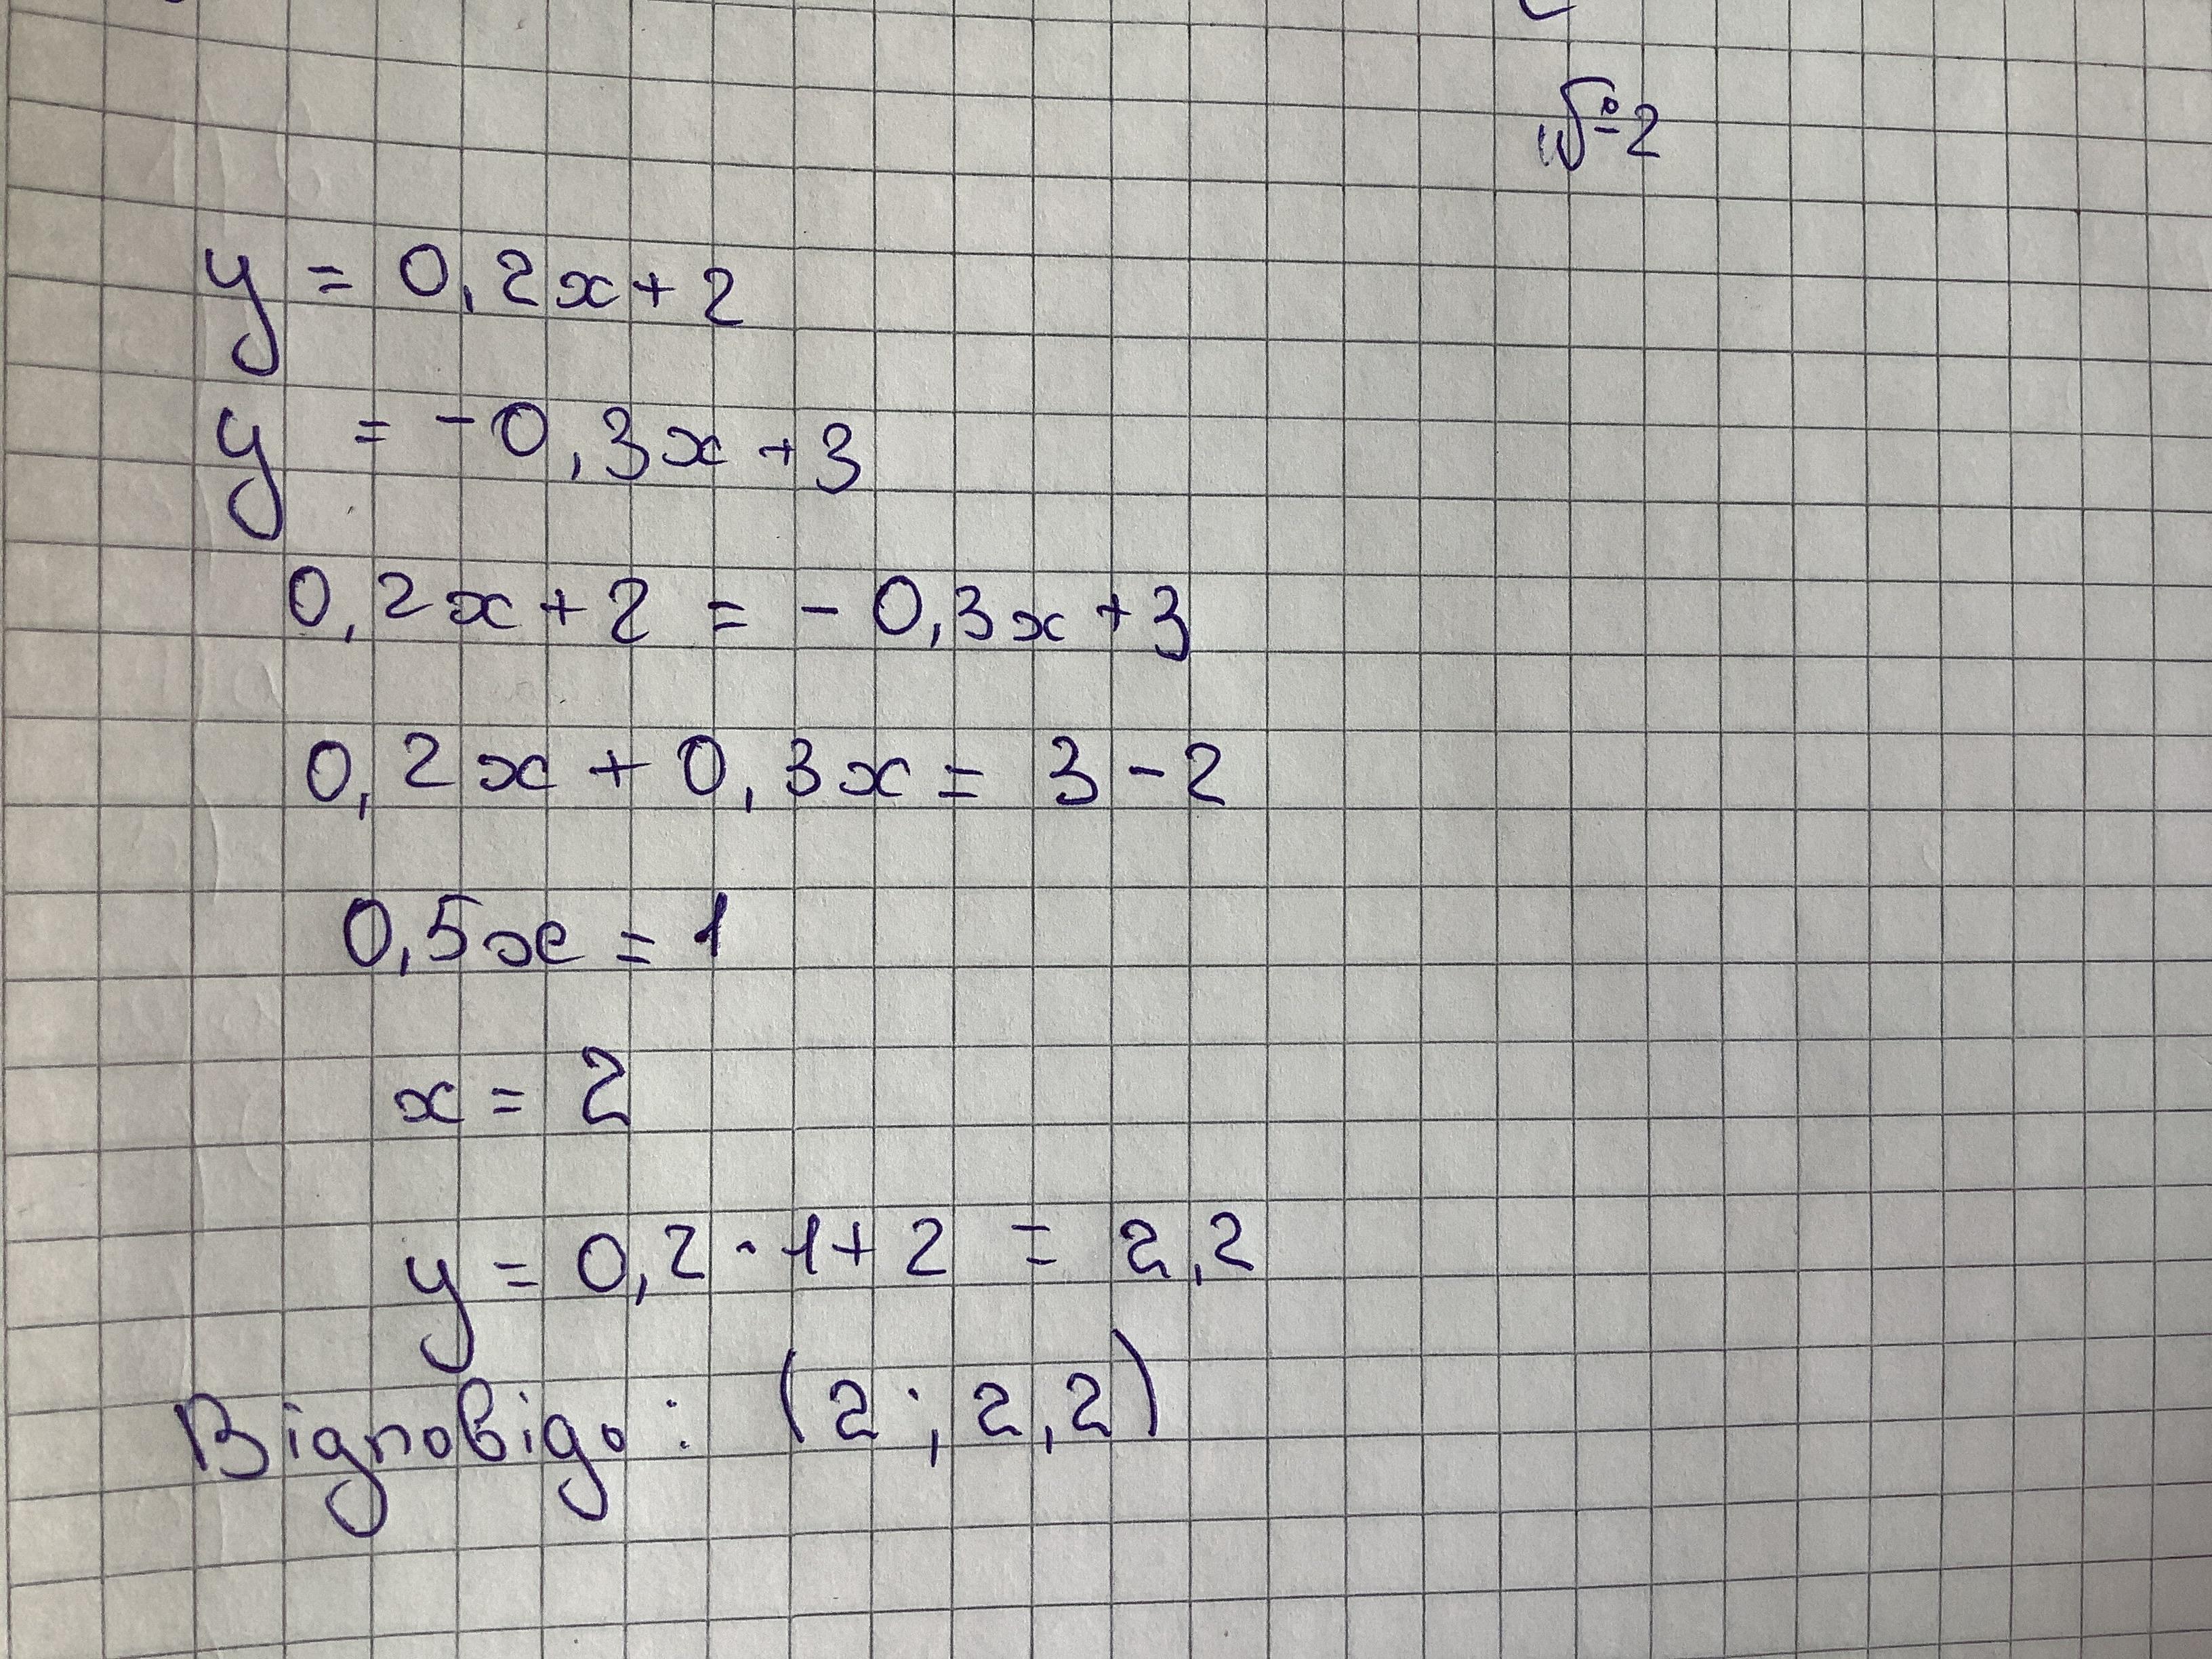 №2
y = 0,2x+2
y = -0,3x+3
0,2x+2 = -0,3x+3
0,2x+0,3x = 3-2
0,5x = 1
x = 2
y = 0,2·1+2 = 2,2
Відповідь: (2; 2,2)